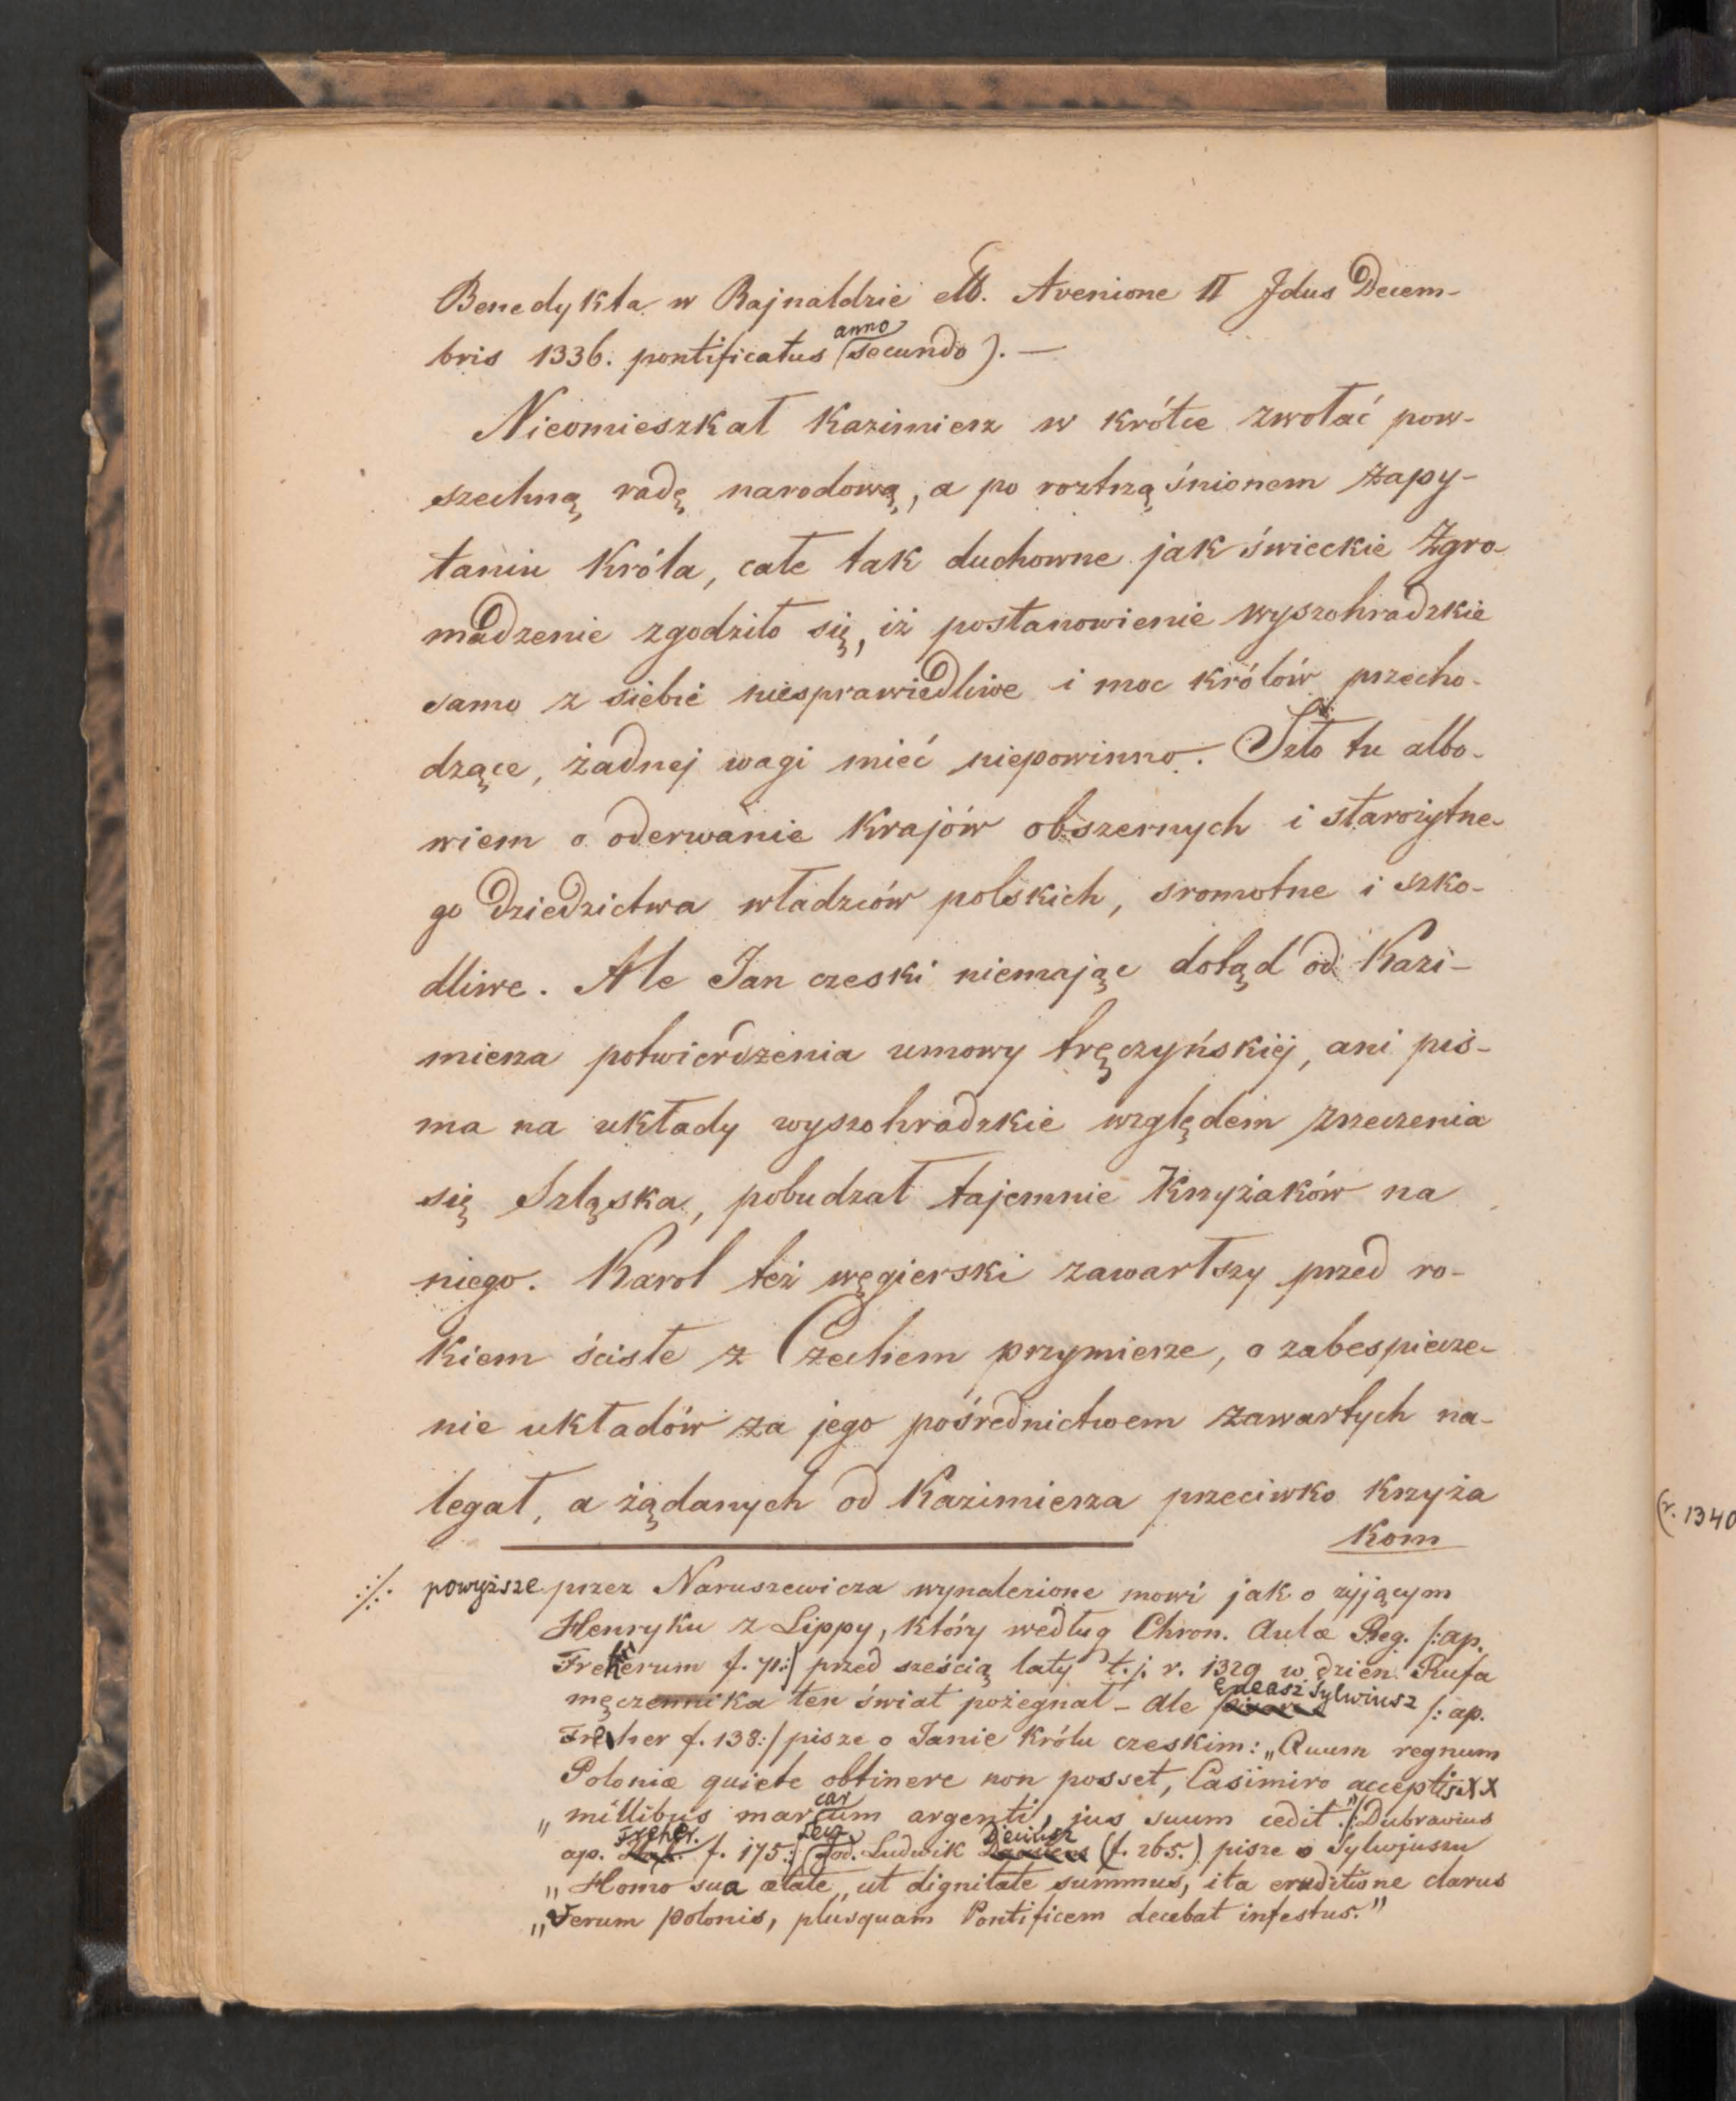 Benedykta w Rajnaldzie etb. Avenione II Jdus Decem-
bris 1336. pontificatus anno secundo). —
Nieomieszkał Kazimierz w krótce zwołać pow-
szechną radę narodową, a po roztrząśnionem zapy-
taniu Króla, całe tak duchowne jak świeckie Zgro-
madzenie zgodziło się, iż postanowienie wyszohradzkie
samo z siebie niesprawiedliwe i moc królów przecho-
dzące, żadnej wagi mieć niepowinno. Szło tu albo-
wiem o oderwanie Krajów obszernych i starożytne-
go dziedzictwa władzców polskich, sromotne i szko-
dliwe. Ale Jan czeski niemając dotąd od Kazi-
mierza potwierdzenia umowy tręczyńskiéj, ani pis-
ma na układy wyszohradzkie względem zrzeczenia
się Szląska, pobudzał tajemnie Krzyżaków na
niego. Karol też węgierski zawartszy przed ro-
kiem ścisłe z Czechem przymierze, o zabespiecze-
nie układów za jego pośrednictwem zawartych na-
legał, a żądanych od Kazimierza przeciwko Krzyża
kom
powyższe przez Naruszewicza wynalezione mowi jak o żyjącym
Henryku z Lippy, który według Chron. Aulæ Reg. /:ap.
Freherum f. 71:/ przed sześcią laty t.j. r. 1329 w dzień Rufa
męczennika ten świat pożegnał – ale Eneasz Sylwiusz /: ap.
Freher f. 138:/ pisze o Janie Królu czeskim: „Quum regnum
Poloniæ quiete obtinere non posset, Casimiro acceptis XX
„millibus marcarum argenti, jus suum cedit." /:Dubravius
ap. Freher. f. 175:/ Lecz Jod. Ludwik Decius (f. 265.) pisze o Sylwjuszu
„Homo sua ætate, ut dignitate summus, ita eruditione clarus
„Verum Polonis, plusquam Pontificem decebat infestus."
(r. 1340